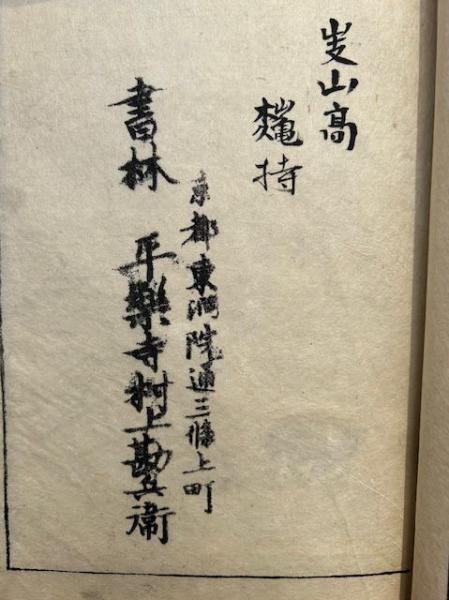 山高
持
京都東洞院通三條上町
書林 平樂寺村上勘兵衛